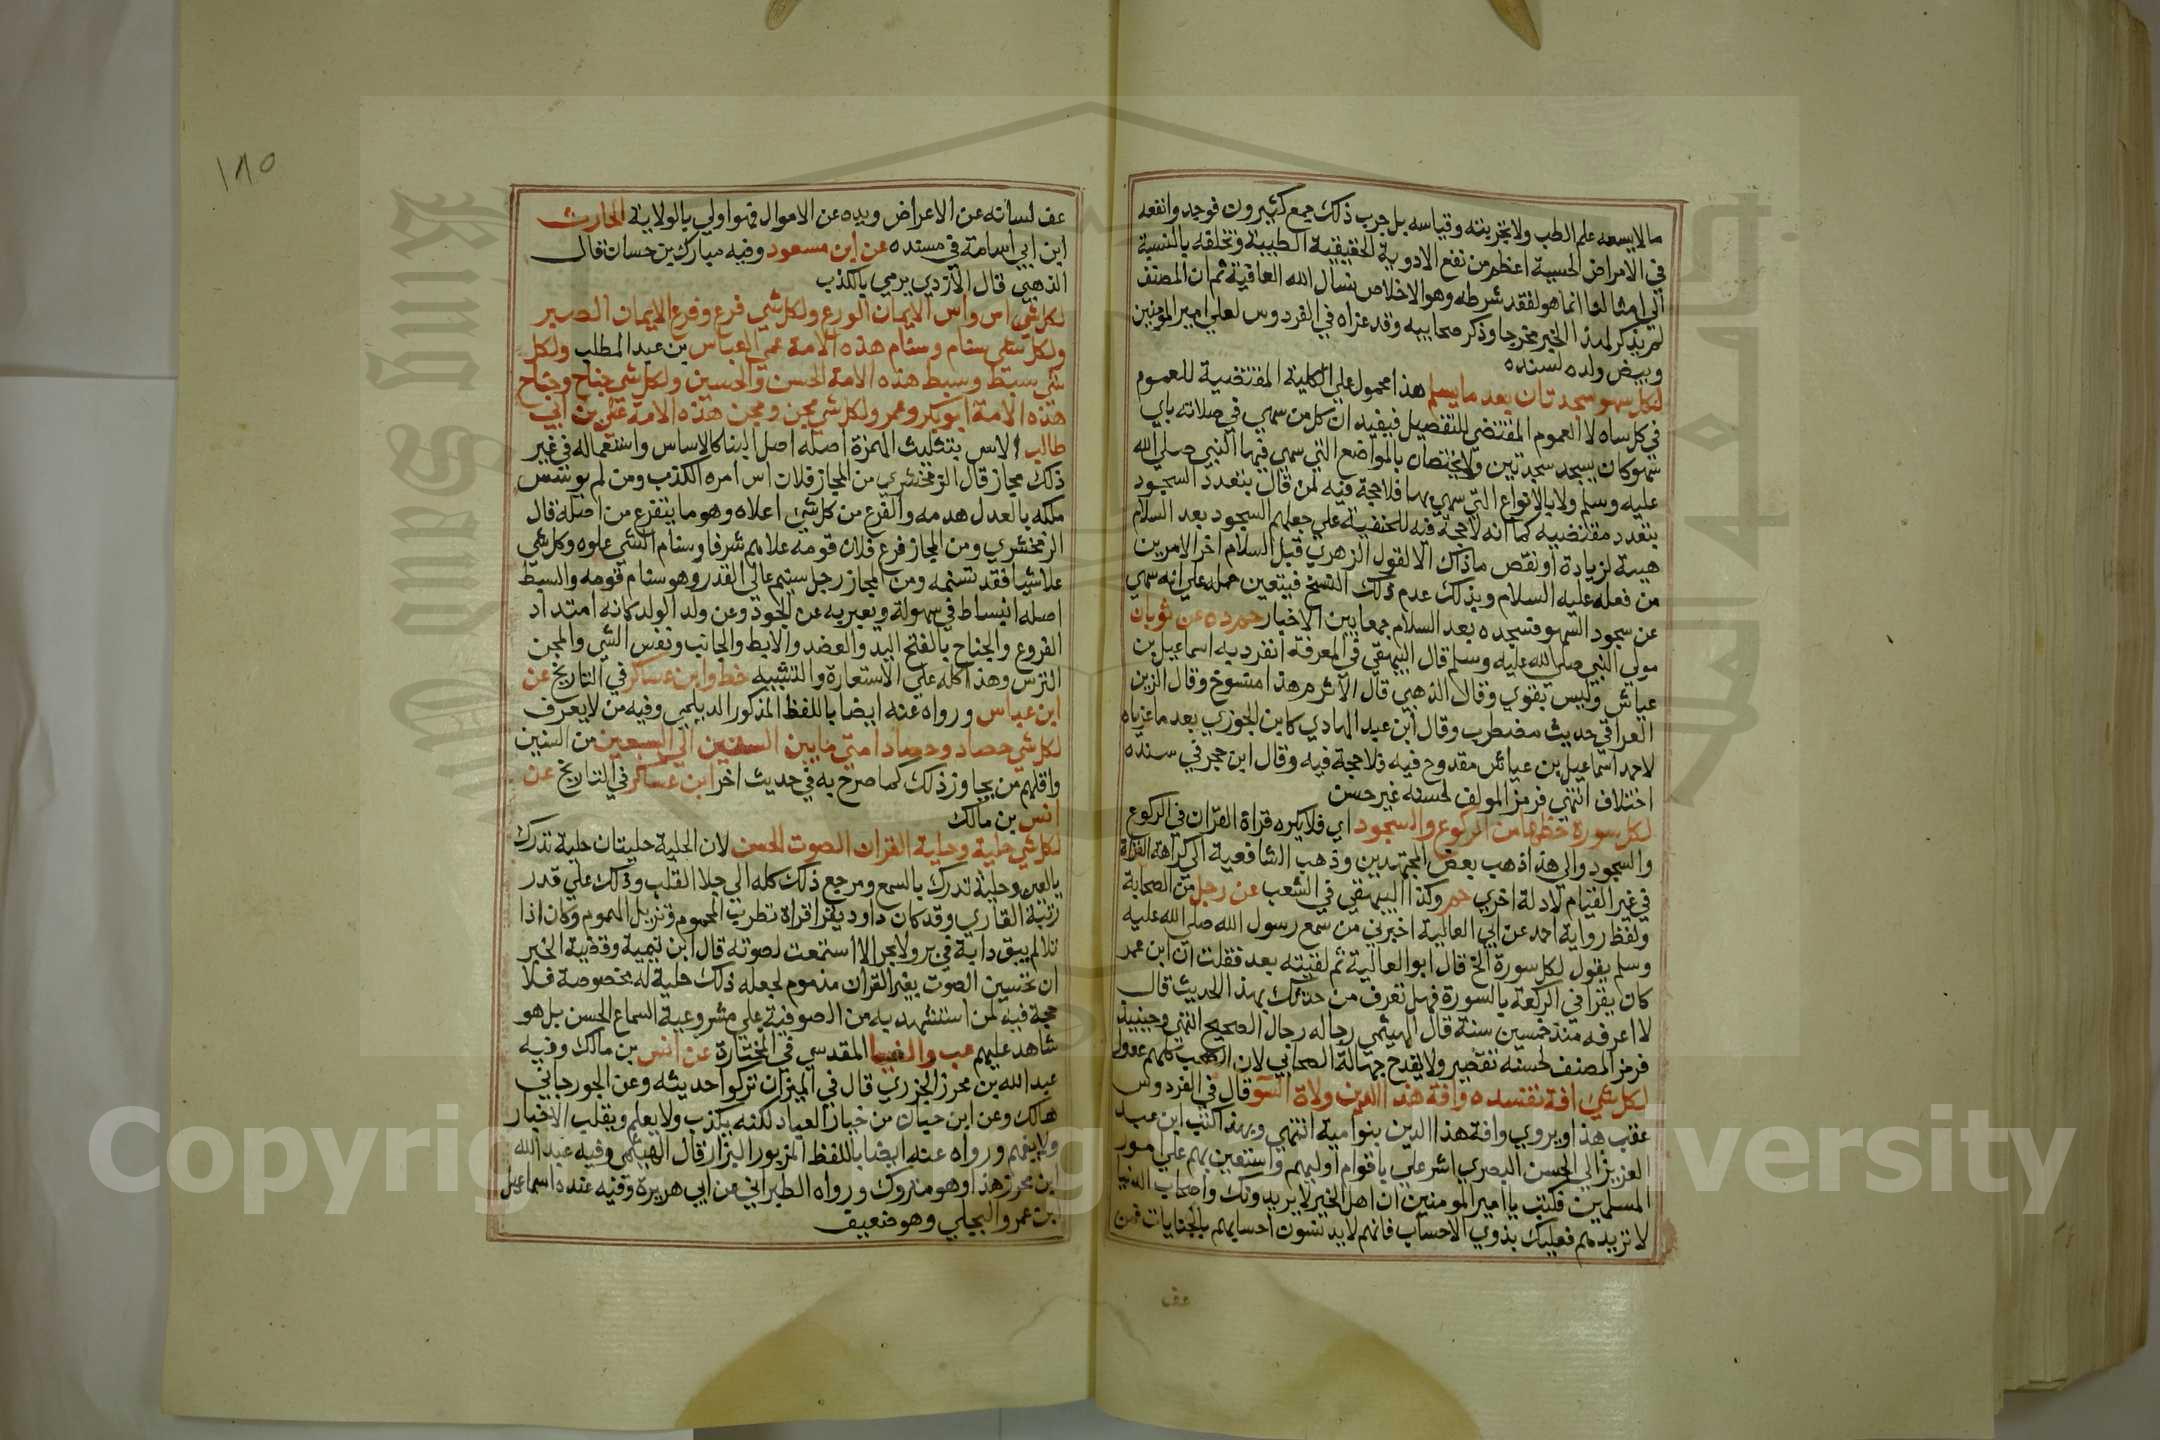 ما لا يسعه علم الطب ولا تجربته وقياسه بل جرب ذلك جمع كثيرون فوجدوا نفعه
في الامراض الحسية اعظم من نفع الادوية الحقيقية الطبية وتخلقه بالنسبة
الى امثالنا انما هو لفقد شرطه وهو الاخلاص نسال الله العافية ثم ان المصنف
لم يذكر لهذا الخبر مخرجا وذكر صحابيه وقد عزاه في الفردوس لعلي امير المؤمنين
وبيض ولده لسنده
لكل سهو سجدتان بعد ما يسلم هذا محمول على الكلية المقتضية للعموم
في كل ساه لا العموم المقتضي للتفصيل فيفيد ان كل من سهي في صلاته باي
سهو كان يسجد سجدتين ولا يختصان بالمواضع التي سهي فيها النبي صلى الله
عليه وسلم ولا بالانواع التي سهي بها فلا حجة فيه لمن قال بتعدد السجود
بتعدد مقتضيه كما انه لا حجة فيه للحنفية على جعلهم السجود بعد السلام
هيبة لزيادة او نقص ماذاك الا لقول الزهري قبل السلام اخر الامرين
من فعله عليه السلام وبذلك عدم ذلك النسخ فيتعين حمله على انه سهي
عن سجود السهو فسجده بعد السلام جمعا بين الاخبار حم د ه عن ثوبان
مولي النبي صلى الله عليه وسلم قال البيهقي في المعرفة انفرد به اسماعيل بن
عياش وليس بقوي وقال الذهبي قال الاثرم هذا منسوخ وقال الزين
العراقي حديث مضطرب وقال ابن عبد الهادي كابن الجوزي بعد ما عزياه
لاحمد اسماعيل بن عياش مقدوح فيه فلا حجة فيه وقال ابن حجر في سنده
اختلاف انتهي فرمز المولف لحسنه غير حسن
لكل سورة حظها من الركوع والسجود اي فلا يكره قراة القران في الركوع
والسجود والى هذا ذهب بعض المجتهدين وذهب الشافعية الى كراهة القراة
في غير القيام لادلة اخري حم وكذا البيهقي في الشعب عن رجل من الصحابة
ولفظ رواية احمد عن ابي العالية اخبرني من سمع رسول الله صلى الله عليه
وسلم يقول لكل سورة الخ قال ابو العالية ثم لقيته بعد فقلت ان ابن عمر
كان يقرا في الركعة بالسورة فهل تعرف من حدثك بهذا الحديث قال
لا اعرفه منذ خمسين سنة قال الهيثمي رجاله رجال الصحيح انتهي وحينيذ
فرمز المصنف لحسنه تقصير ولا يقدح جهالة الصحابي لان الصحب كلهم عدول
لكل شي افة تفسده وافة هذا الدين ولاة السو قال في الفردوس
عقب هذا ويروي وافة هذا الدين بنوا مية انتهي وبهذا كتب ابن عبد
العزيز الى الحسن البصري اشر علي باقوام اوليهم واستعين بهم على امور
المسلمين فكتب يا امير المومنين ان اهل الخير لا يريدونك واصحاب الدنيا
لا تريدهم فعليك بذوي الاحساب فانهم لا يدنسون احسابهم بالجنايات فمن
عف
١٨٥
عف لسانه عن الاعراض ويده عن الاموال فهو اولي بالولاية الحارث
ابن ابي اسامة في مسنده عن ابن مسعود وفيه مبارك بن حسان قال
الذهبي قال الازدي يرمي بالكذب
لكل شي اس واس الايمان الورع ولكل شي فرع وفرع الايمان الصبر
ولكل شي سنام وسنام هذه الامة عمي العباس بن عبد المطلب ولكل
شي سبط وسبط هذه الامة الحسن والحسين ولكل شي جناح وجناح
هذه الامة ابو بكر وعمر ولكل شي مجن ومجن هذه الامة علي بن ابي
طالب الاس بتثليث الهمزة اصله اصل البنا كالاساس واستعماله في غير
ذلك مجاز قال الزمخشري من المجاز فلان اس امره الكذب ومن لم يوسس
ملكه بالعدل هدمه والفرع من كل شي اعلاه وهو ما يتفرع من اصله قال
الزمخشري ومن المجاز فرع فلان قومه علاهم شرفا وسنام الشي علوه وكل شي
علا شيا فقد تسنمه ومن المجاز رجل سنيم عالي القدر وهو سنام قومه والسبط
اصله انبساط في سهولة ويعبر به عن الجود وعن ولد الولد كانه امتداد
الفروع والجناح بالفتح اليد والعضد والابط والجانب ونفس الشي والمجن
الترس وهذا كله على الاستعارة والتشبيه خط وابن عساكر في التاريخ عن
ابن عباس ورواه عنه ايضا باللفظ المذكور الديلمي وفيه من لا يعرف
لكل شي حصاد وحصاد امتي ما بين الستين الى السبعين من السنين
واقلهم من يجاوز ذلك كما صرح به في حديث اخر ابن عساكر في التاريخ عن
انس بن مالك
لكل شي حلية وحلية القران الصوت الحسن لان الحلية حليتان حلية تدرك
بالعين وحلية تدرك بالسمع ومرجع ذلك كله الى جلا القلب وذلك على قدر
رتبة القاري وقد كان داود يقرا قراة تطرب المحموم وتزيل الهموم وكان اذا
تلا لم يبق دابة في بر ولا بحر الا استمعت لصوته قال ابن تيمية وقضية الخبر
ان تحسين الصوت بغير القران مذموم لجعله ذلك حلية له بخصوصة فلا
حجة فيه لمن استشهد به من الصوفية على مشروعية السماع الحسن بل هو
شاهد عليهم عب والضيا المقدسي في المختارة عن انس بن مالك وفيه
عبد الله بن محرز الجزري قال في الميزان تركوا حديثه وعن الجورجاني
هالك وعن ابن حبان من خيار العباد لكنه يكذب ولا يعلم ويقلب الاخبار
ولا يفهم ورواه عنه ايضا باللفظ المزبور البزار قال الهيثمي وفيه عبد الله
ابن محرز هذا وهو متروك ورواه الطبراني عن ابي هريرة وفيه عنده اسماعيل
بن عمرو البجلي وهو ضعيف